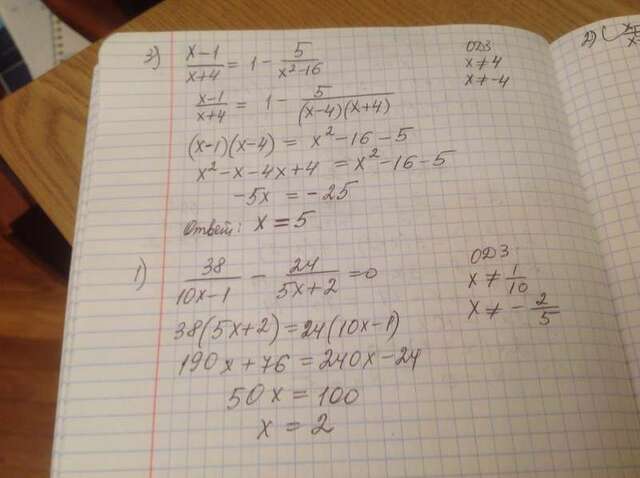 3) (x-1)/(x+4) = 1 - 5/(x²-16)
ОДЗ
x ≠ 4
x ≠ -4
(x-1)/(x+4) = 1 - 5/((x-4)(x+4))
(x-1)(x-4) = x²-16-5
x²-x-4x+4 = x²-16-5
-5x = -25
Ответ: x = 5
1) 38/(10x-1) - 24/(5x+2) = 0
ОДЗ:
x ≠ 1/10
x ≠ -2/5
38(5x+2) = 24(10x-1)
190x+76 = 240x-24
50x = 100
x = 2
2)